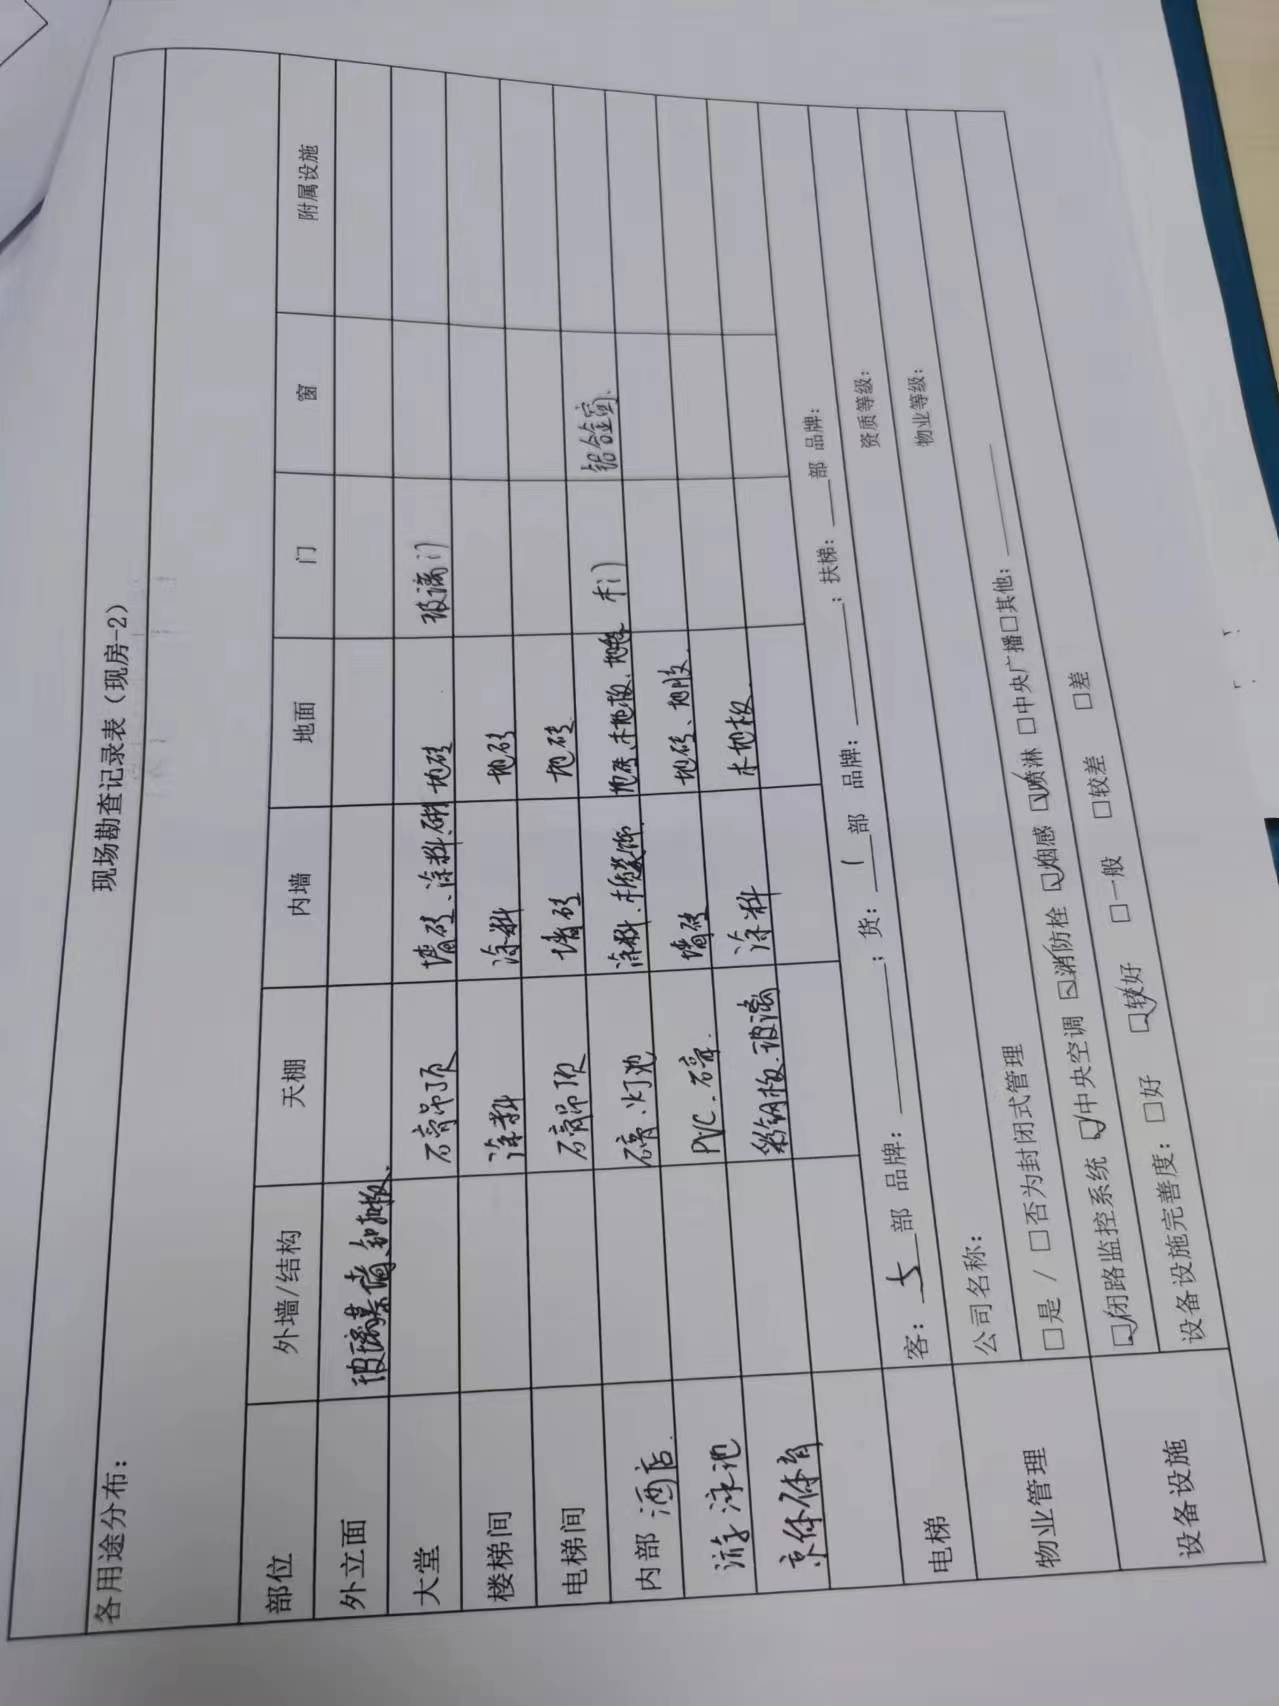 现场勘查记录表（现房-2）
各用途分布：
部位 外墙/结构 天棚 内墙 地面 门 窗 附属设施
外立面 玻璃幕墙、铝板、
大堂 石膏吊顶 墙砖、涂料、 地砖 玻璃门
楼梯间 涂料 涂料 地砖
电梯间 石膏吊顶 墙砖 地砖
内部 酒店. 石膏、灯池 涂料、木装饰 地砖、木地板、地毯 木门 铝合金窗.
游泳池 PVC、石膏. 墙砖 地砖、地胶.
京体体育 玻璃 涂料 木地板.
电梯 客： 5 部 品牌： ；货： 1 部 品牌： ；扶梯： 部 品牌：
物业管理 公司名称： 资质等级：
□是 / □否为封闭式管理 物业等级：
设备设施 ☑闭路监控系统 ☑中央空调 ☑消防栓 ☑烟感 ☑喷淋 □中央广播□其他：
设备设施完善度：□好 ☑较好 □一般 □较差 □差